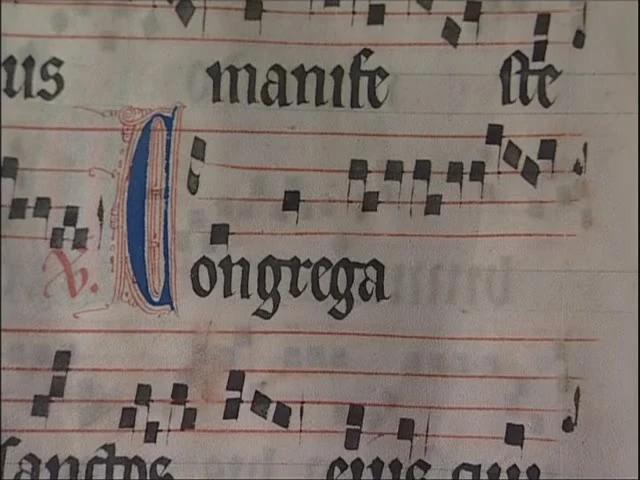 us manifeste
℣. Congrega
sanctos eius qui